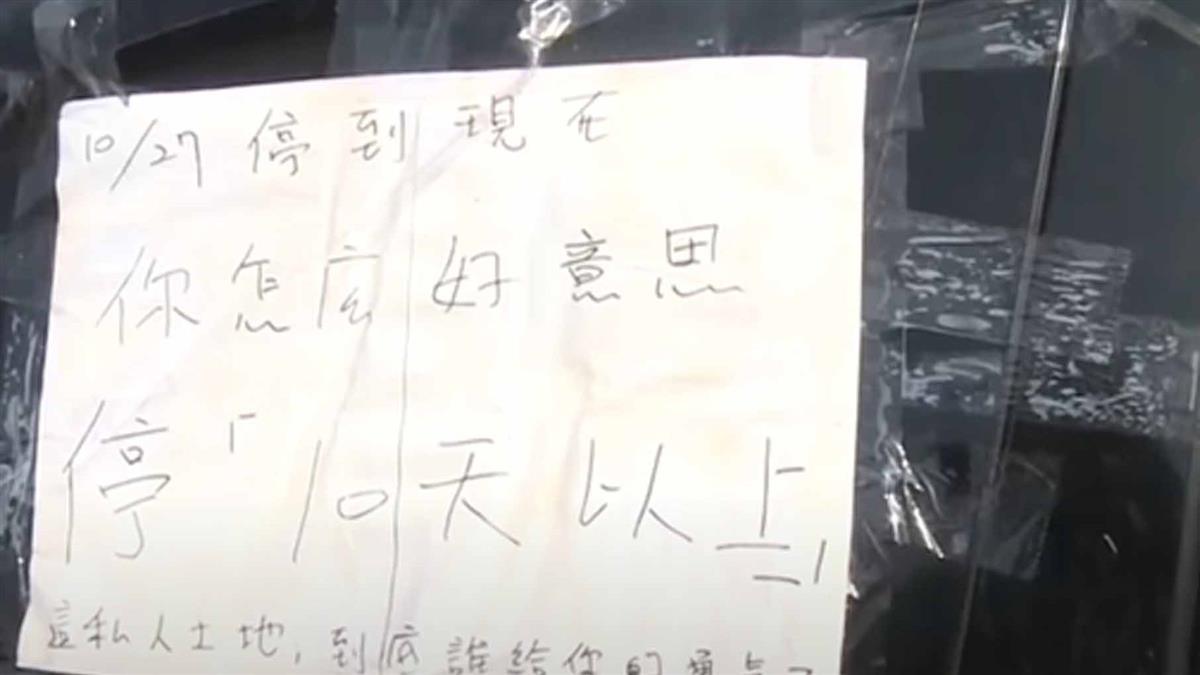 10/27 停到現在
你怎么好意思
停「10天以上」
這私人土地,到底誰給你的勇氣